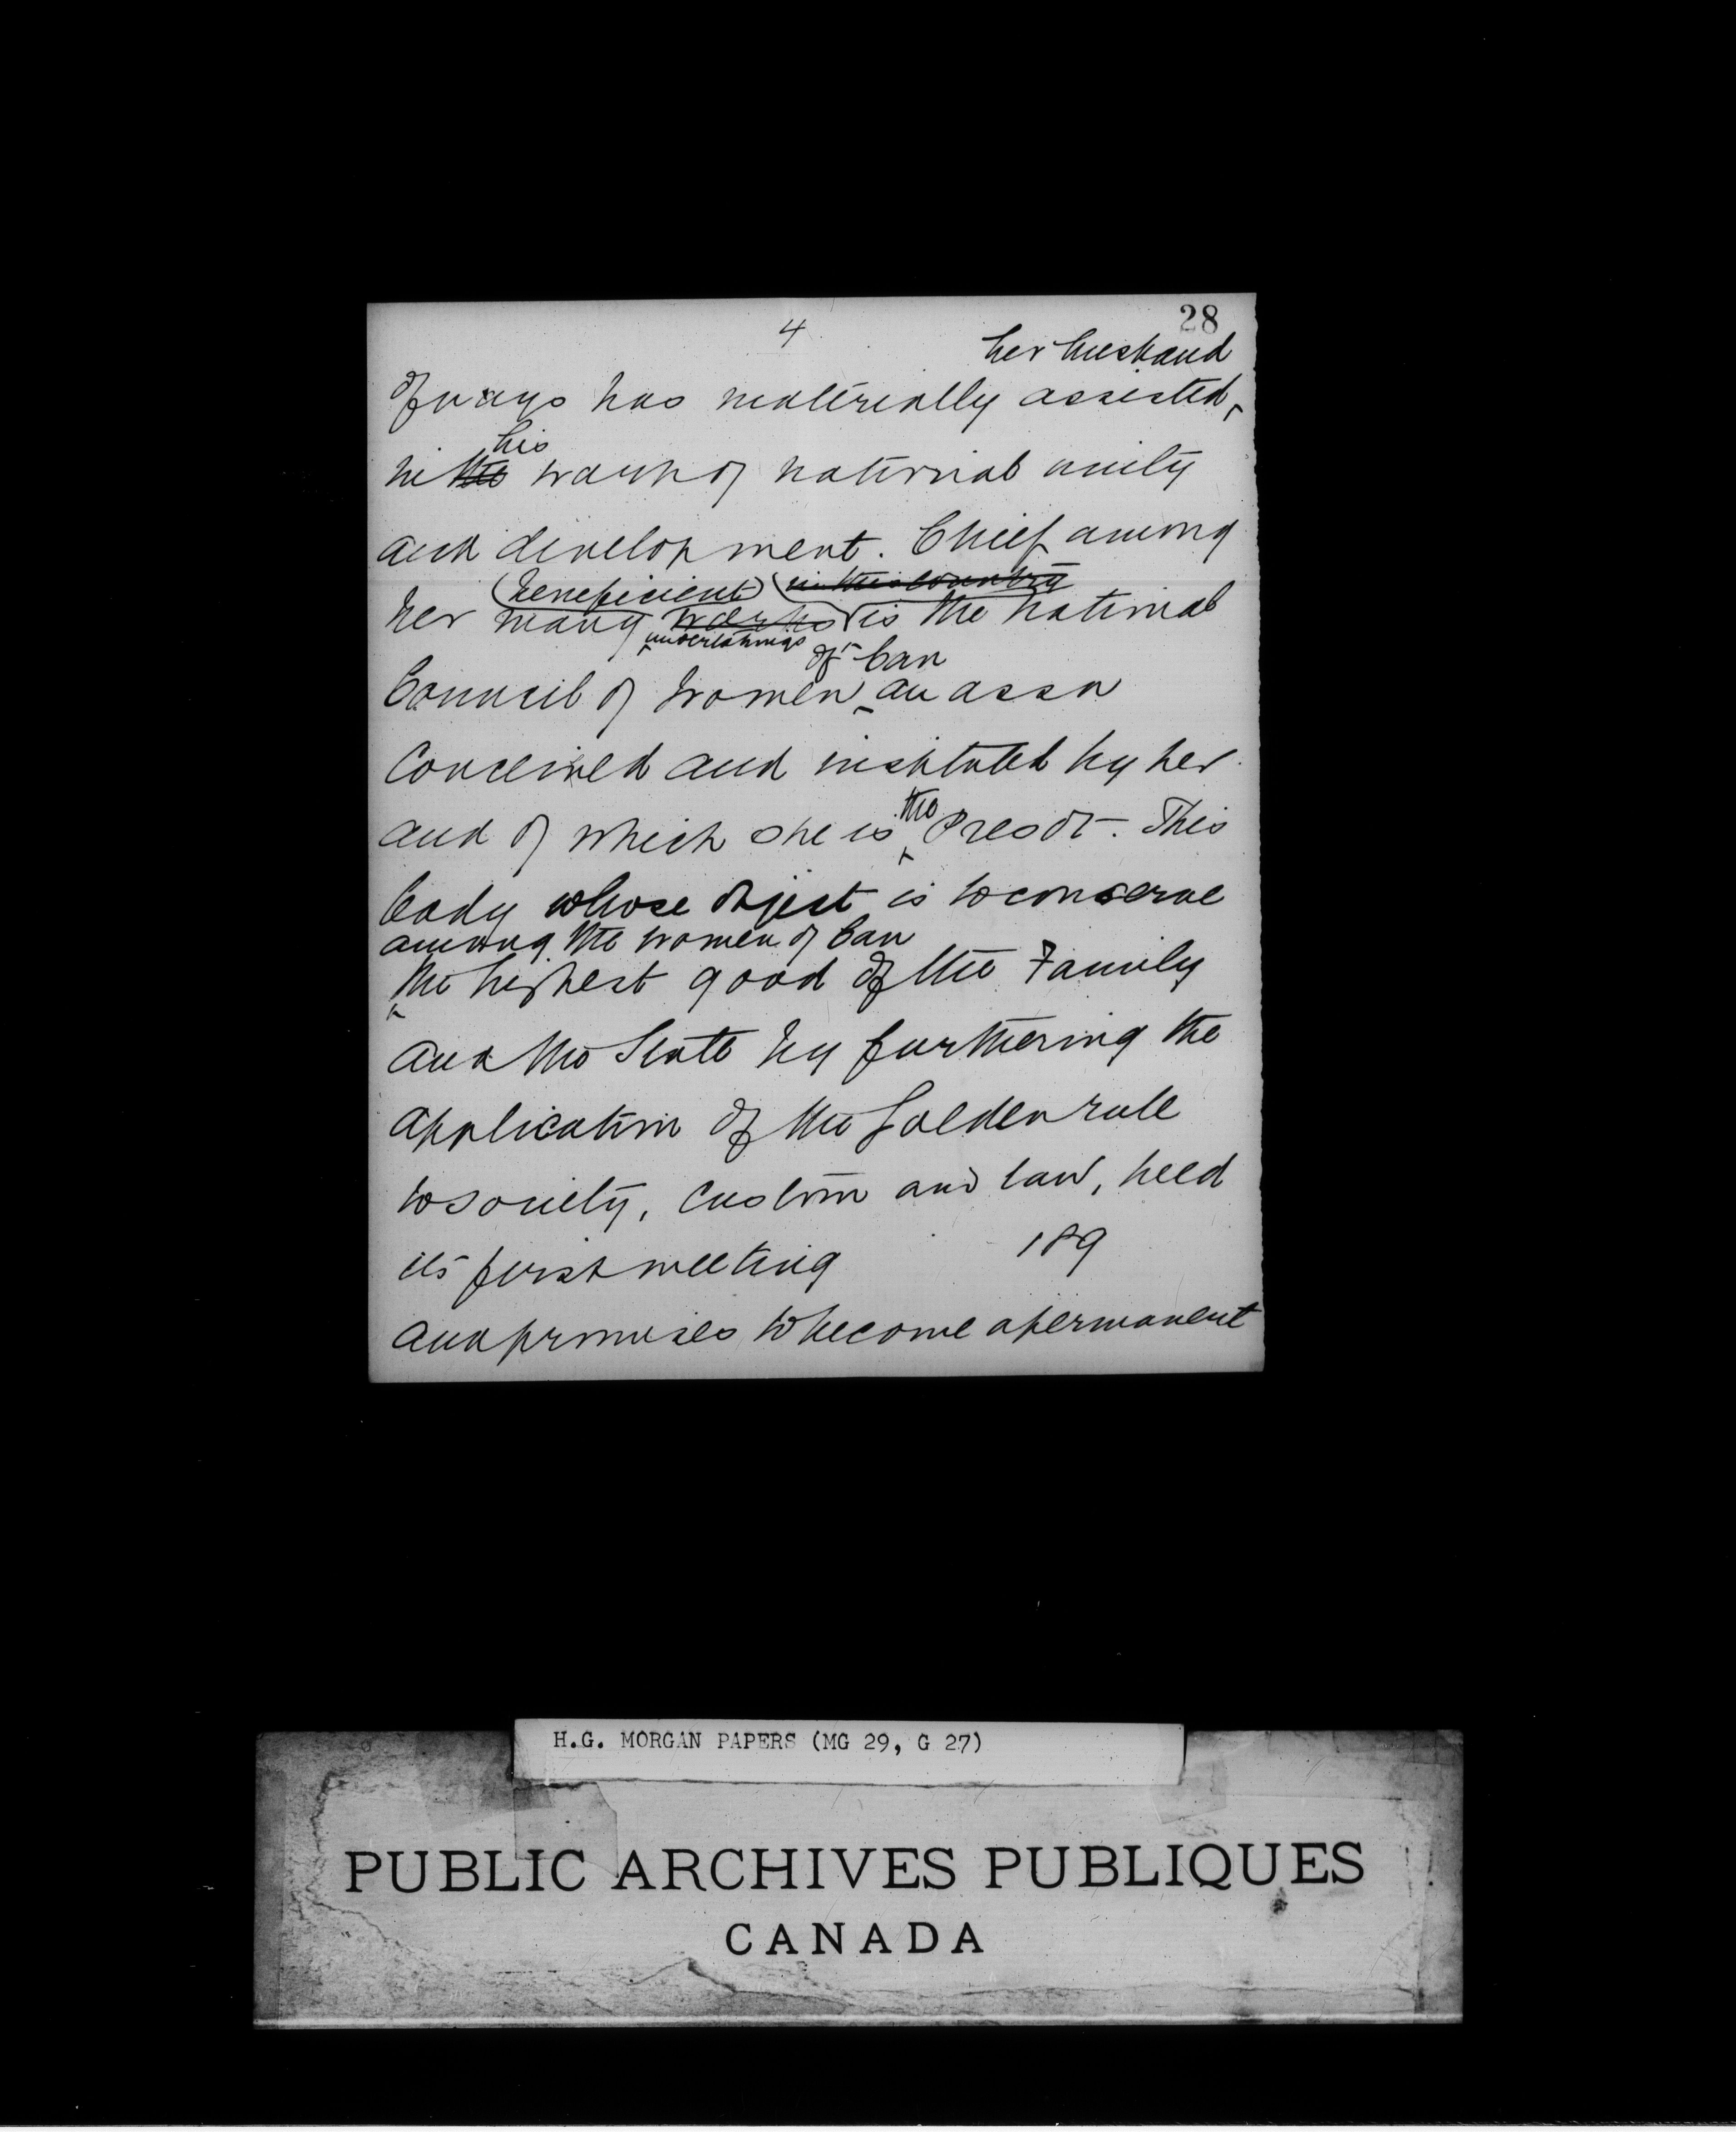 28
4
her husband
of ways has materially assisted
his
in the work of national unity
and development. Chief among
beneficient in this country
her many works is the national
undertakings
of Can
Council of Women an assn
conceived and instituted by her
the
and of which she is Presdt. This
body whose object is to conserve
among the women of Can
the highest good of the Family
and the State by furthering the
application of the Golden rule
to society, custom and law, held
its first meeting 189
and promises to become a permanent
H.G. MORGAN PAPERS (MG 29, G 27)
PUBLIC ARCHIVES PUBLIQUES
CANADA